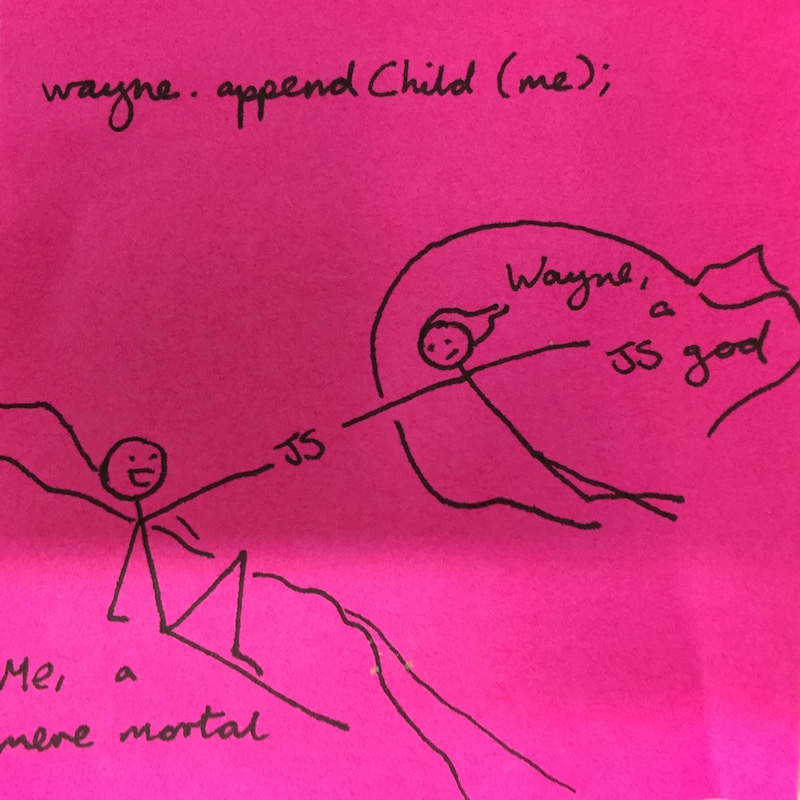 wayne.appendChild(me);
Wayne,
a
JS god
JS
Me, a
mere mortal